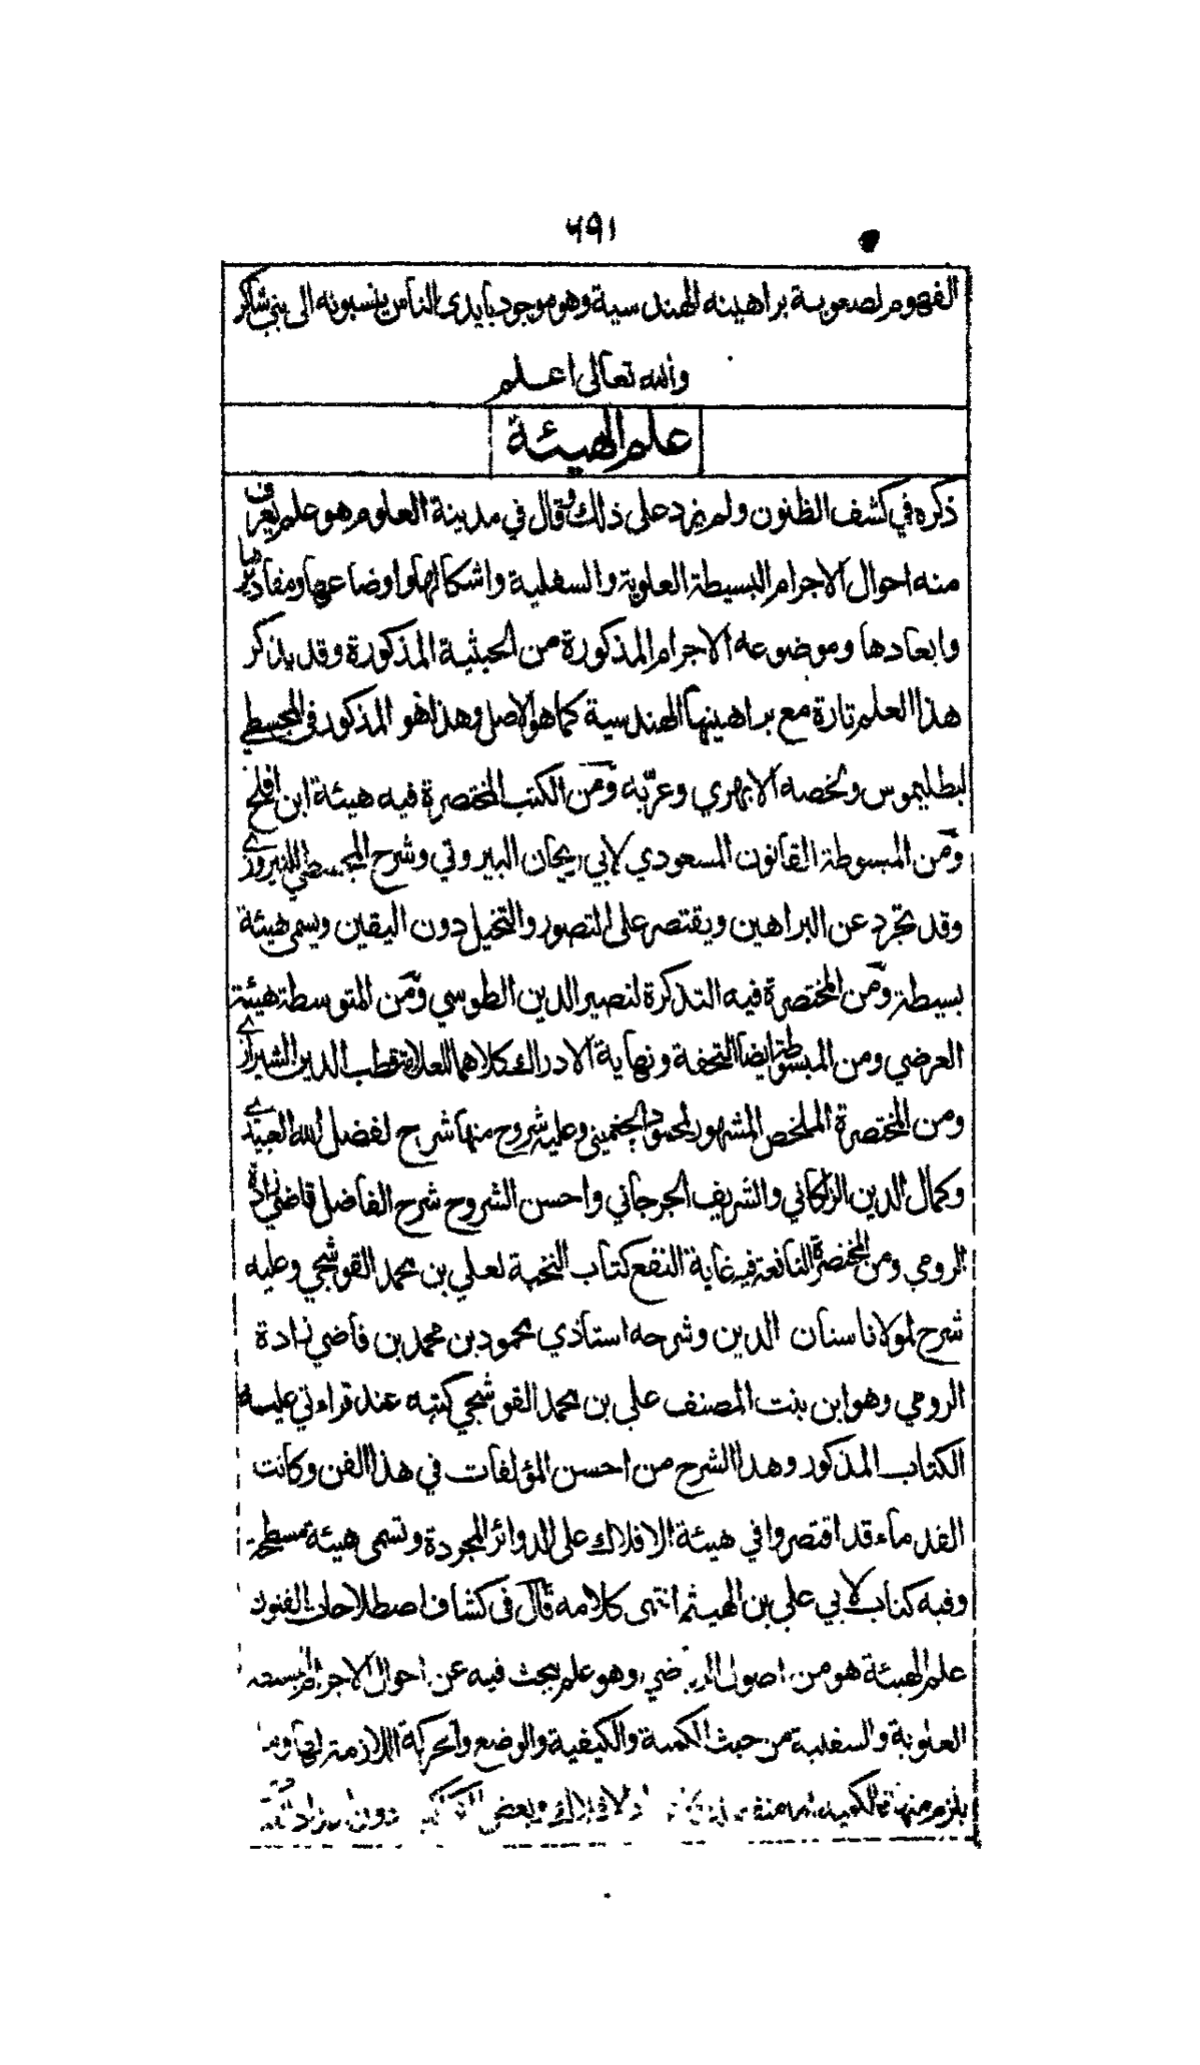 ٦٩١
الفهوم لصعوبة براهينه الهندسية وهو موجود بايدى الناس ينسبونه الى بنى شاكر
والله تعالى اعلم
علم الهيئة
ذكره في كشف الظنون ولم يزد على ذلك وقال في مدينة العلوم هو علم يعرف
منه احوال الاجرام البسيطة العلوية والسفلية واشكالها واوضاعها ومقاديرها
وابعادها وموضوعه الاجرام المذكورة من الحيثية المذكورة وقد يذكر
هذا العلم تارة مع براهينها الهندسية كما هو الاصل وهذا هو المذكور فى المجسطي
لبطليموس ولخصه الابهري وعرّبه ومن الكتب المختصرة فيه هيئة ابن افلح
ومن المبسوطة القانون المسعودي لابي ريحان البيروتي وشرح المجسطي للنيروزي
وقد تجرد عن البراهين ويقتصر على التصور والتخيل دون اليقين ويسمى هيئة
بسيطة ومن المختصرة فيه التذكرة لنصير الدين الطوسي ومن المتوسطة هيئة
العرضي ومن المبسوطة ايضا التحفة ونهاية الادراك كلاهما للعلامة قطب الدين الشيرازي
ومن المختصرة الملخص المشهور لمحمود الجغميني وعليه شروح منها شرح لفضل الله العبيدي
وكمال الدين الزاكاني والشريف الجرجاني واحسن الشروح شرح الفاضل قاضي زادة
الرومي ومن المختصرة النافعة فيه غاية النفع كتاب النخبة لعلي بن محمد القوشجي وعليه
شرح لمولانا سنان الدين وشرحه استاذي محمود بن محمد بن قاضي زادة
الرومي وهو ابن بنت المصنف علي بن محمد القوشجي كتبه عند قراءتي عليه
الكتاب المذكور وهذا الشرح من احسن المؤلفات في هذا الفن وكانت
القدماء قد اقتصروا في هيئة الافلاك على الدوائر المجردة وتسمى هيئة مسطحة
وفيه كتاب لابي علي بن الهيثم انتهى كلامه قال فى كشاف اصطلاحات الفنون
علم الهيئة هو من اصول الرياضي وهو علم يبحث فيه عن احوال الاجرام البسيطة
العلوية والسفلية من حيث الكمية والكيفية والوضع والحركة اللازمة لها وما
يلزم منها فالكمية اما منفصلة الافلاك وبعض الكواكب دون